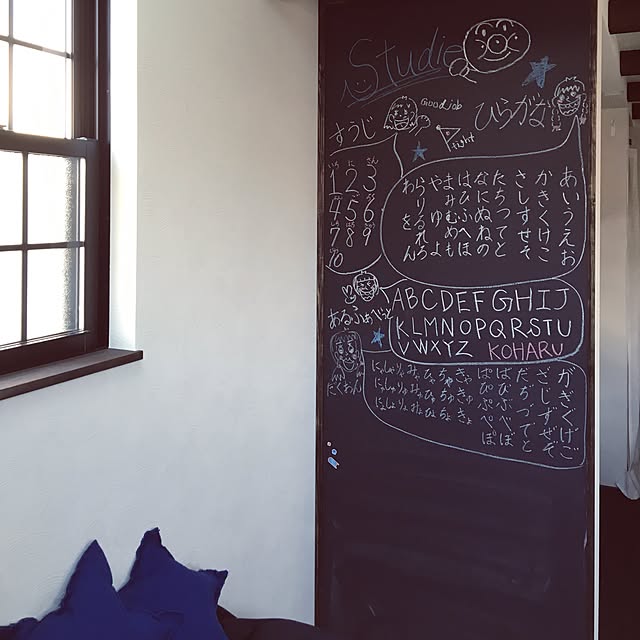 Studie
Good job
ひらがな
fight
すうじ
いち に さん
1 2 3
4 5 6
7 8 9
10
あいうえお
かきくけこ
さしすせそ
たちつてと
なにぬねの
はひふへほ
まみむめも
や ゆ よ
らりるれろ
わ を ん
あるふぁべっと
ABCDEFGHIJ
KLMNOPQRSTU
VWXYZ KOHARU
がぎぐげご
ざじずぜぞ
だぢづでど
ばびぶべぼ
ぱぴぷぺぽ
きゃ きゅ きょ
ちゃ ちゅ ちょ
ひゃ ひゅ ひょ
みゃ みゅ みょ
りゃ りゅ りょ
しゃ しゅ しょ